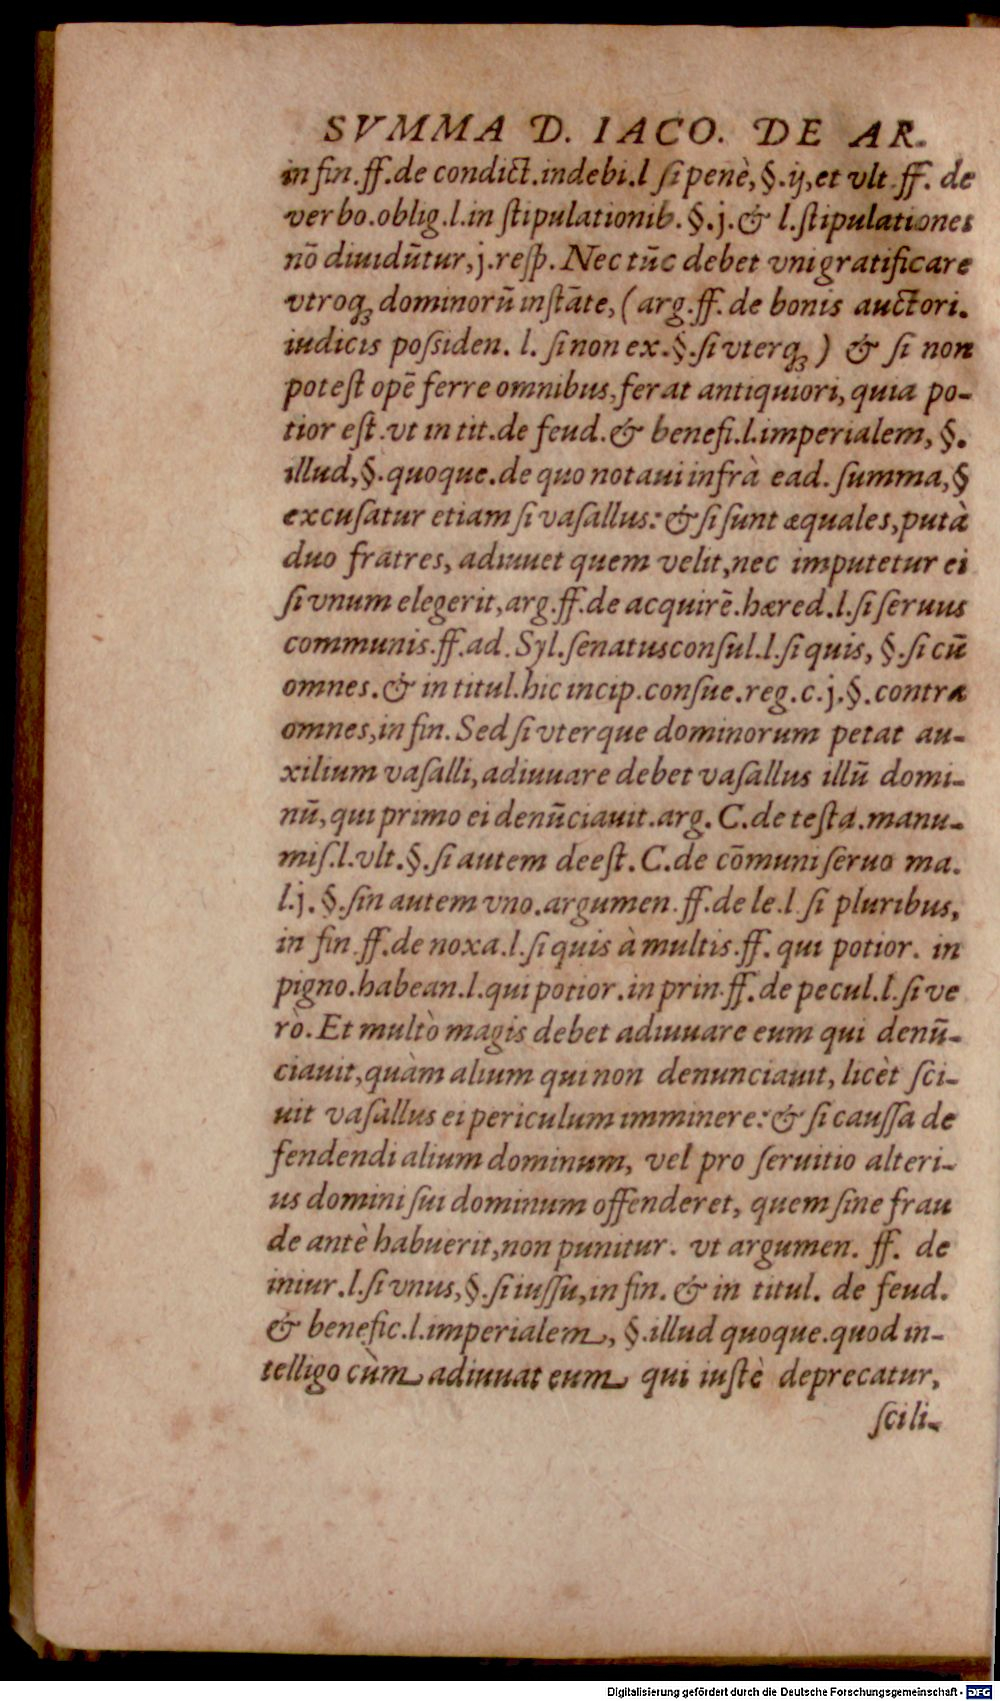 SVMMA D. IACO. DE AR.
in fin.ff.de condict.indebi.l si penè,§.ij,et vlt.ff. de
verbo.oblig.l.in stipulationib.§.j.& l.stipulationes
nō diuidūtur,j.resp.Nec tūc debet vni gratificare
vtroqꝫ dominorū instāte,(arg.ff.de bonis auctori.
iudicis possiden. l. si non ex.§.si vterqꝫ ) & si non
potest opē ferre omnibus,ferat antiquiori,quia po-
tior est.vt in tit.de feud.& benefi.l.imperialem,§.
illud,§.quoque.de quo notaui infrà ead.summa,§
excusatur etiam si vasallus:& si sunt æquales,putà
duo fratres, adiuuet quem velit,nec imputetur ei
si vnum elegerit,arg.ff.de acquirē.hæred.l.si seruus
communis.ff.ad.Syl.senatusconsul.l.si quis, §.si cū
omnes.& in titul.hic incip.consue.reg.c.j.§.contra
omnes,in fin.Sed si vterque dominorum petat au-
xilium vasalli,adiuuare debet vasallus illū domi-
nū,qui primo ei denūciauit.arg.C.de testa.manu-
mis.l.vlt.§.si autem deest.C.de cōmuni seruo ma.
l.j.§.sin autem vno.argumen.ff.de le.l.si pluribus,
in fin.ff.de noxa.l.si quis à multis.ff.qui potior. in
pigno.habean.l.qui potior.in prin.ff.de pecul.l.si ve
rò.Et multò magis debet adiuuare eum qui denū-
ciauit,quàm alium qui non denunciauit, licèt sci-
uit vasallus ei periculum imminere:& si caussa de
fendendi alium dominum, vel pro seruitio alteri-
us domini sui dominum offenderet, quem sine frau
de antè habuerit,non punitur. vt argumen. ff. de
iniur.l.si vnus,§.si iussu,in fin.& in titul. de feud.
& benefic.l.imperialem, §.illud quoque.quod in-
telligo cùm adiuuat eum qui iustè deprecatur,
scili-
Digitalisierung gefördert durch die Deutsche Forschungsgemeinschaft - DFG